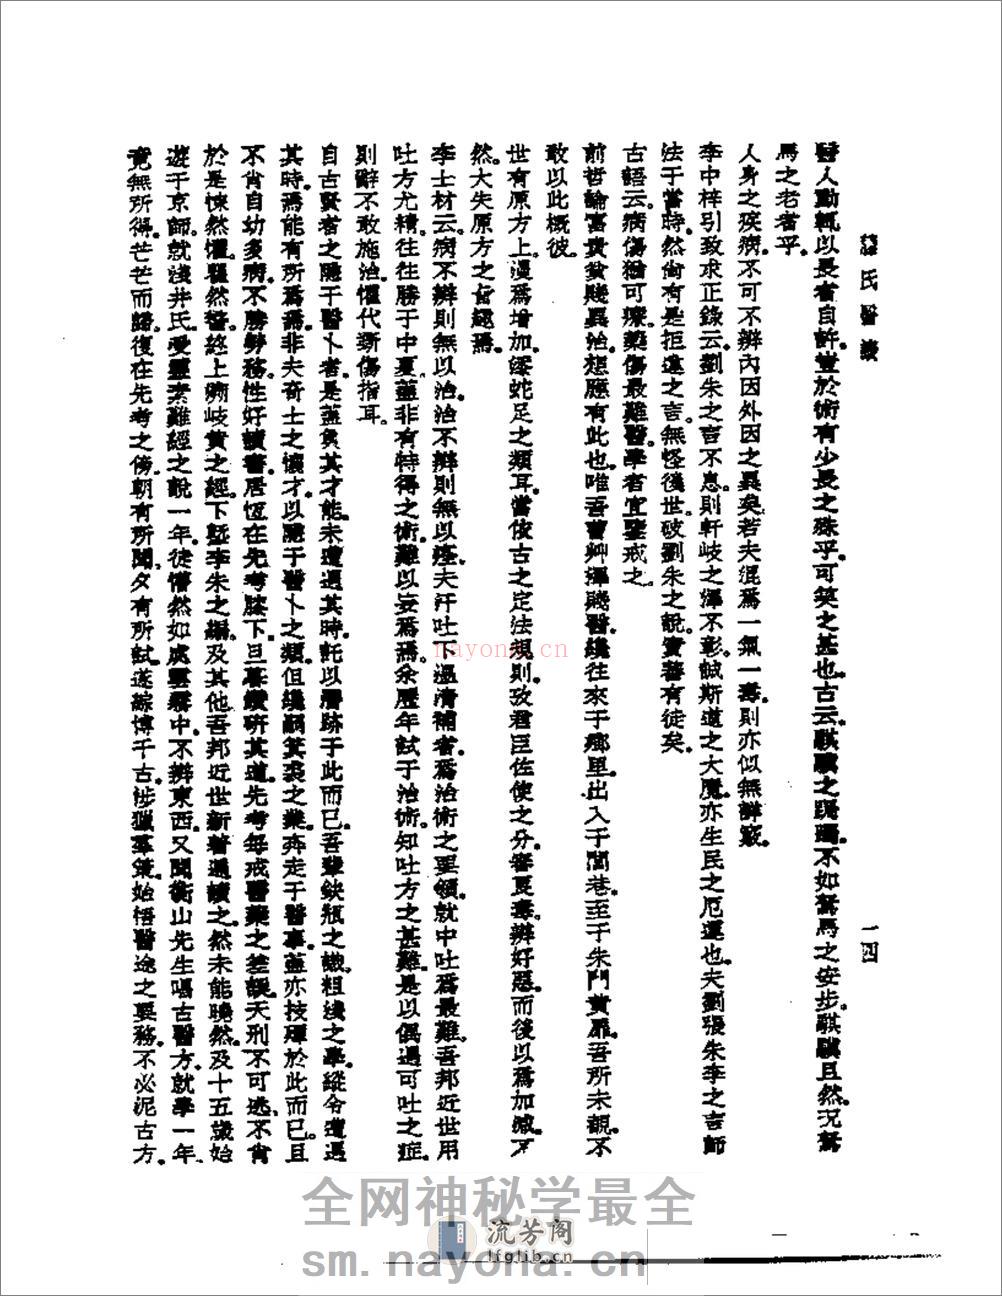 藤氏醫談
一四
醫人動輒以長者自許豈於術有少長之殊乎可笑之甚也古云騏驥之跼躅不如駑馬之安步騏驥且然況駑
馬之老者乎
人身之疾病不可不辨內因外因之異矣若夫混爲一氣一毒則亦似無譁竅
李中梓引致求正錄云劉朱之言不息則軒岐之澤不彰誠斯道之大魔亦生民之厄運也夫劉張朱李之言師
法于當時然尙有是拒遠之言無怪後世破劉朱之說實蕃有徒矣
古語云病傷猶可療藥傷最難醫學者宜鑒戒之
前哲論富貴貧賤異治想應有此也唯吾曹艸澤賤醫纔往來于鄉里出入于閭巷至于朱門貴扉吾所未覩不
敢以此概彼
世有原方上漫爲增加緣蛇足之類耳當依古之定法規則攷君臣佐使之分審良毒辨好惡而後以爲加減不
然大失原方之旨趣焉
李士材云病不辨則無以治治不辨則無以痊夫汗吐下溫清補者爲治術之要領就中吐爲最難吾邦近世用
吐方尤精往往勝于中夏蓋非有特得之術難以妄爲焉余歷年試于治術知吐方之甚難是以偶遇可吐之症
則辭不敢施治懼代斲傷指耳
自古賢者之隱于醫卜者是蓋負其才能未遭遇其時託以潛跡于此而已吾輩缺瓶之識粗淺之學縱令遭遇
其時焉能有所爲焉非夫奇士之懷才以隱于醫卜之類但纔嗣箕裘之業奔走于醫事蓋亦技殫於此而已且
不肖自幼多病不勝勞務性好讀書居恆在先考膝下旦暮鑽研其道先考每戒醫藥之差誤天刑不可逃不肖
於是悚然懼瞿然誓終上溯岐黃之經下曁李朱之編及其他吾邦近世新著通讀之然未能曉然及十五歲始
遊于京師就淺井氏受靈素難經之說一年徒懵然如處雲霧中不辨東西又聞衡山先生唱古醫方就學一年
竟無所得芒芒而歸復在先考之傍朝有所聞夕有所試遂綜博千古涉獵羣策始悟醫途之要務不必泥古方
nayona.cn
全网神秘学最全
流芳阁
lfglib.cn
sm.nayona.cn